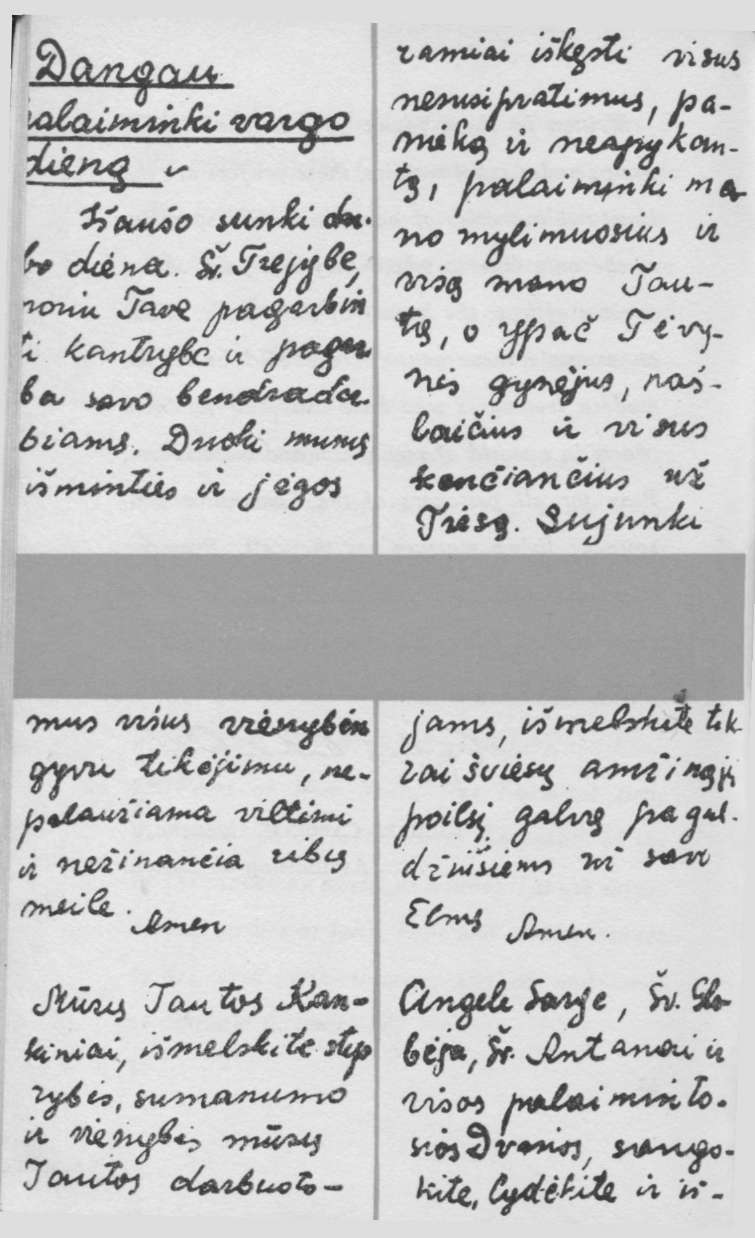 Dangau
palaiminki vargo
dieną
Išaušo sunki dar-
bo diena. Šv. Trejybe,
noriu Tave pagerbin
ti kantrybe ir pagar-
ba savo bendradar-
biams. Duoki mums
išminties ir jėgos
ramiai iškęsti visus
nesusipratimus, pa-
nieką ir neapykan-
tą, palaiminki ma
no mylimuosius ir
visą mano Tau-
tą, o ypač Tėvy-
nės gynėjus, naš-
laičius ir visus
kenčiančius už
Tiesą. Sujunki
mus visus vienybėn
gyvu tikėjimu, ne-
palaužiama viltimi
ir nežinančia ribų
meile. Amen
Mūsų Tautos Kan-
kiniai, išmelskite stip
rybės, sumanumo
ir vienybės mūsų
Tautos darbuoto-
jams, išmelskite tik
rai šviesų amžinąjį
poilsį galvą pagul-
džiusiems už savo
Žemę Amen.
Angele Sarge, Šv. Glo-
bėja, Šv. Antanai ir
visos palaiminto-
sios Dvasios, saugo-
kite, lydėkite ir iš-